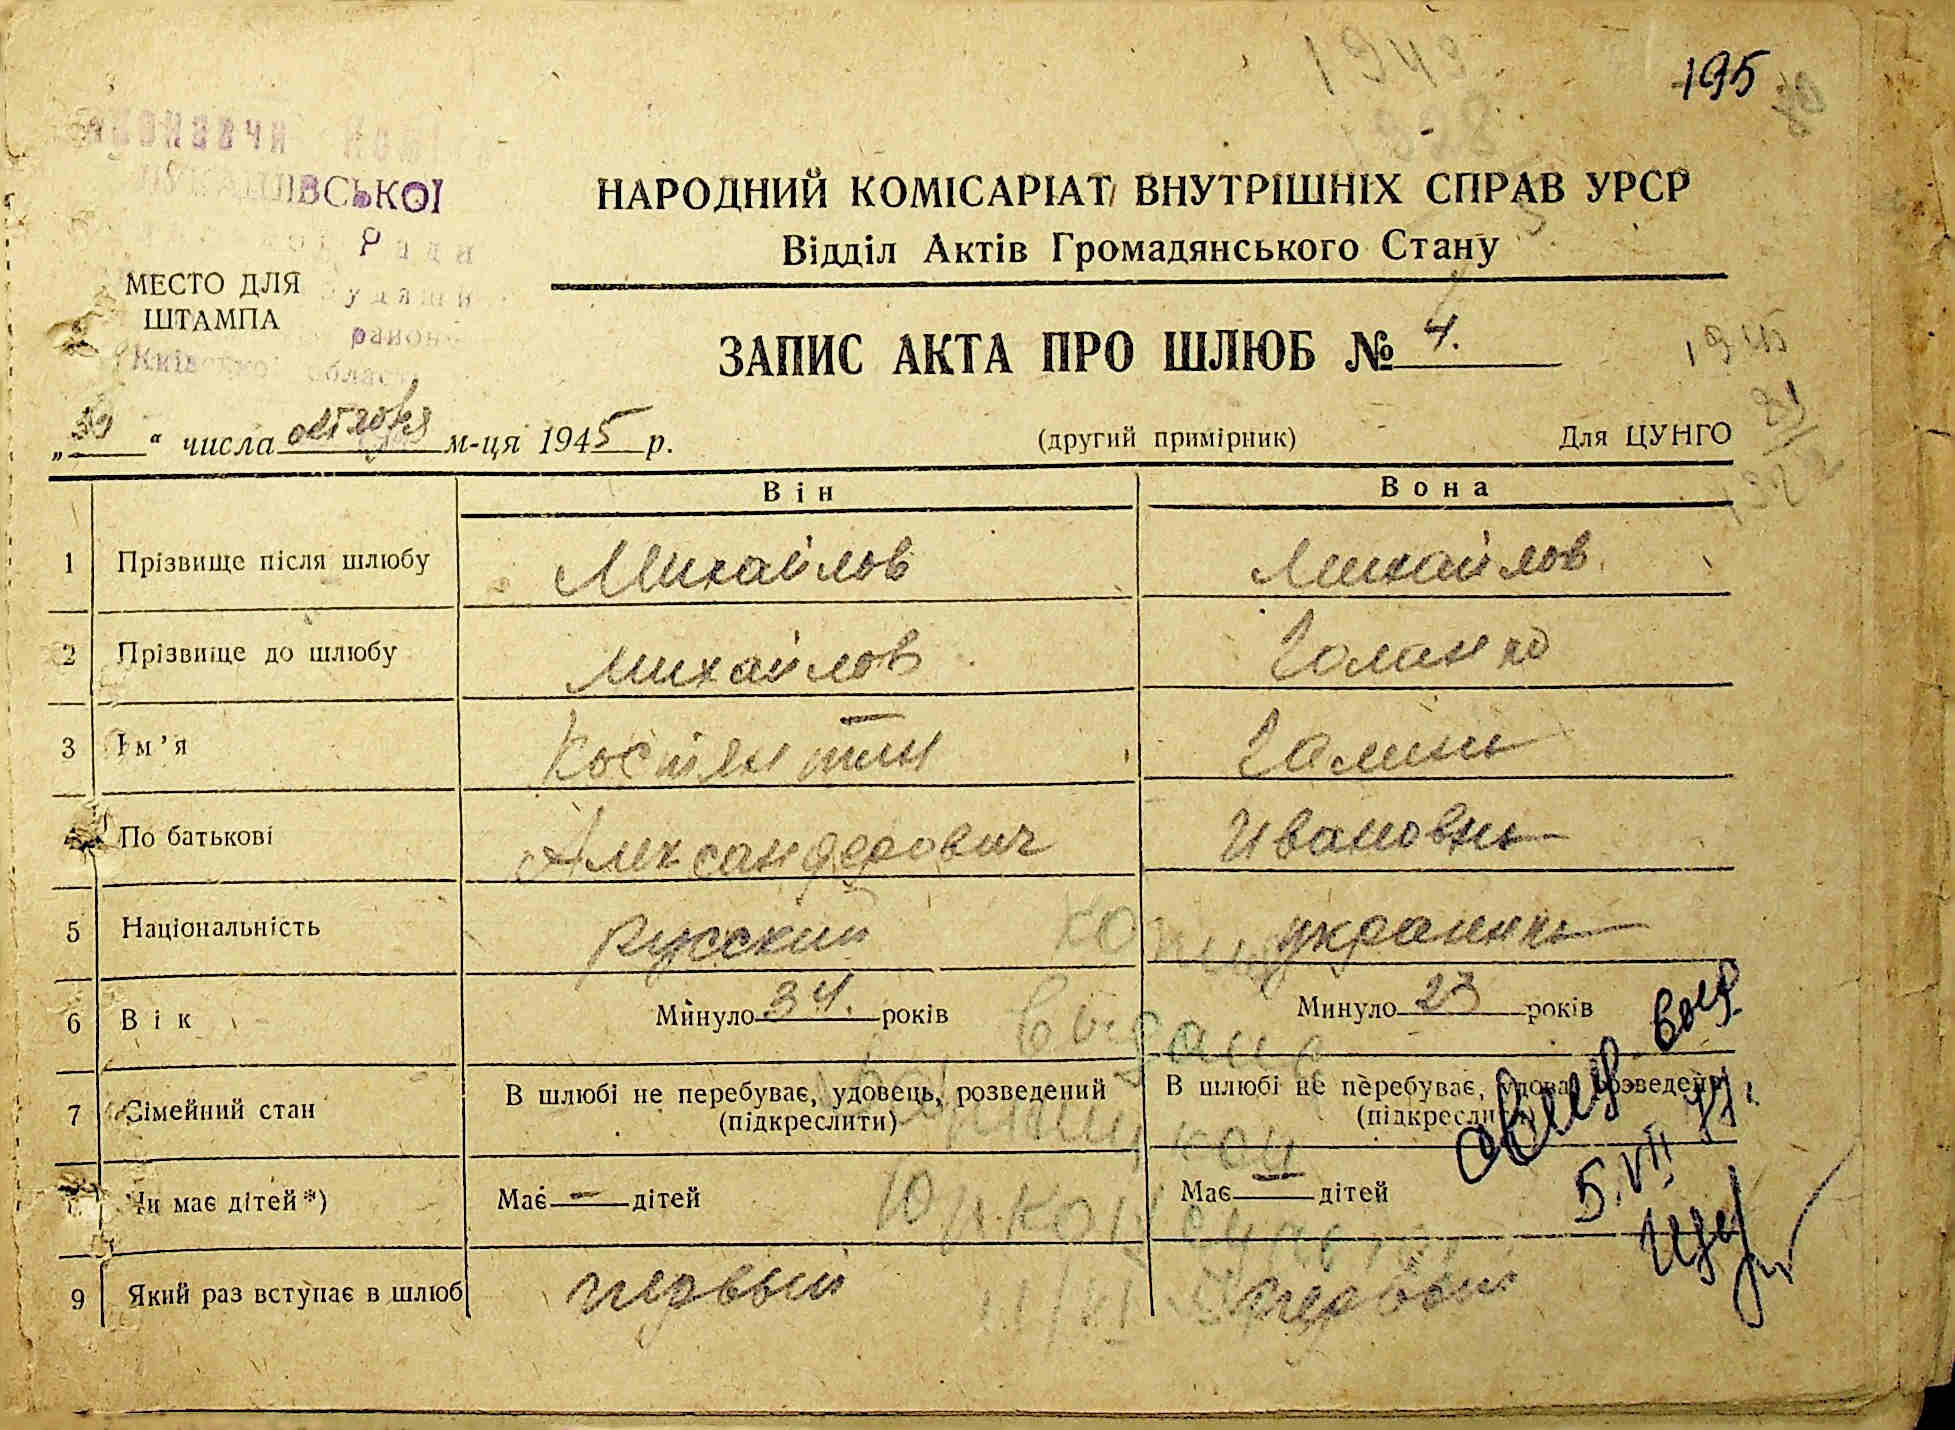 195
НАРОДНИЙ КОМІСАРІАТ ВНУТРІШНІХ СПРАВ УРСР
Відділ Актів Громадянського Стану
ВСЬКОЇ
Ради
району
Київської області
МЕСТО ДЛЯ
ШТАМПА
ЗАПИС АКТА ПРО ШЛЮБ № 4.
„30" числа октября м-ця 1945 р.
(другий примірник)
Для ЦУНГО
1945
Він Вона
1 Прізвище після шлюбу Михайлов Михайлов
2 Прізвище до шлюбу Михайлов
3 Ім'я Костянтин Галина
4 По батькові Александерович Ивановна
5 Національність Русский украинка
6 Вік Минуло 34. років Минуло 23 років
7 Сімейний стан В шлюбі не перебуває, удовець, розведений (підкреслити) В шлюбі не перебуває, удова, розведена (підкреслити)
8 Чи має дітей*) Має — дітей Має — дітей
9 Який раз вступає в шлюб первый первый
копия
выдана
5.VII